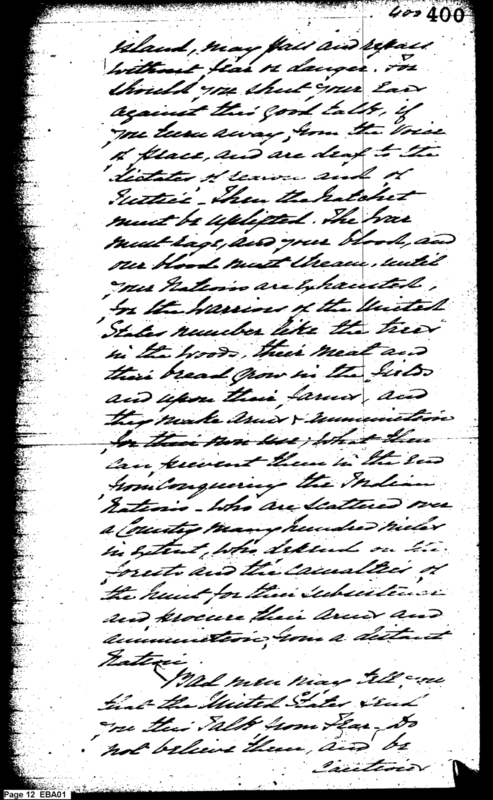 400 400
island, may pass and repass
without fear or danger. For
should you shut your Ears
against this good talk, if
you turn away from the Voice
of peace, and are deaf to the
dictates of reason and of
Justice - Then the hatchet
must be uplifted. The War
must rage, and your blood, and
our blood must stream, until
your Nations are Exhausted,
for the Warriors of the United
States number like the trees
in the Woods, their meat and
their bread grow in the fields
and upon their farms, and
they make arms & ammunition
for their own use; What then
can prevent them in the End
from Conquering the Indian
Nations - Who are scattered over
a Country many hundred miles
in Extent, who depend on the
forests and the Casualties of
the hunt for their subsistence
and procure their arms and
ammunition from a distant
Nation.
Bad men may tell you
that the United States send
you this Talk from fear, Do
not believe them, and be
Cautious
Page 12 EBA01